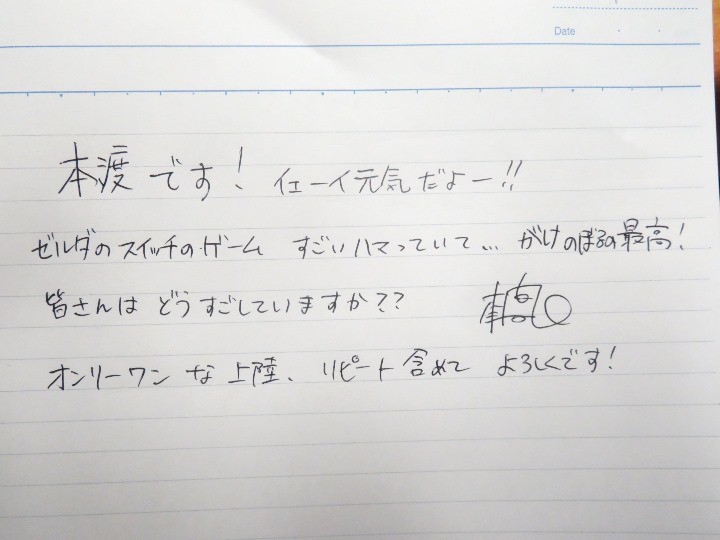 Date
本渡です! イエーイ元気だよー!!
ゼルダのスイッチのゲーム すごいハマっていて... がけのぼるの最高!
皆さんは どうすごしていますか??
オンリーワン な 上陸、リピート 含めて よろしくです!